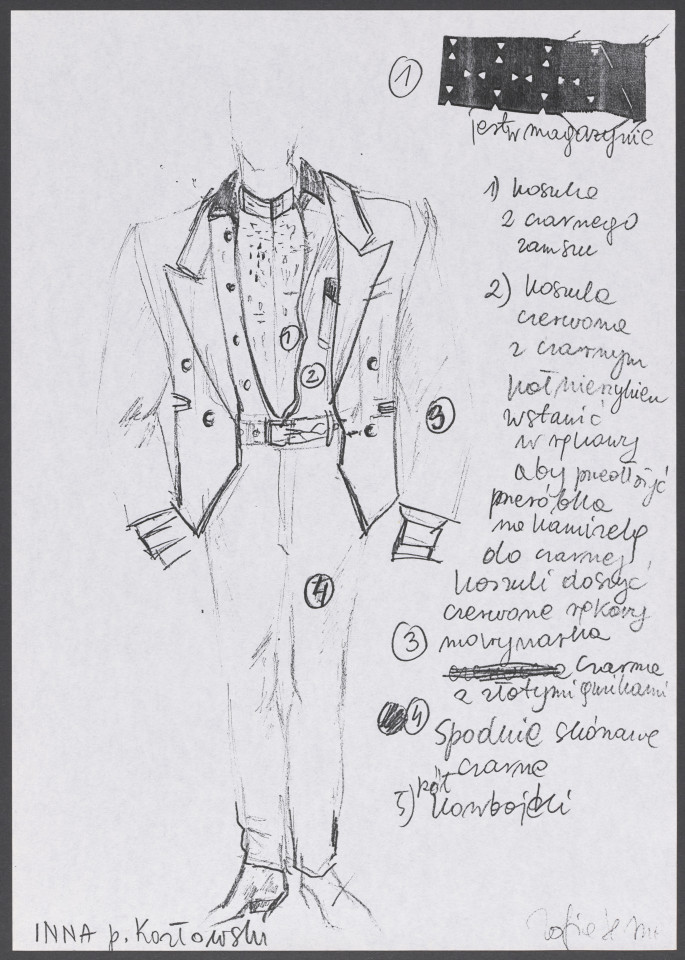 1
jest w magazynie
1) koszula
z czarnego
zamszu
2) koszula
czerwona
z czarnym
kołnierzykiem
wstawić
w rękawy
aby przedłużyć
przeróbka
na kamizelę
do czarnej
koszuli doszyć
czerwone rękawy
3 marynarka
czarna
z złotymi guzikami
4 Spodnie skórzane
czarne
5) pół
kowbojki
1
2
3
4
INNA p. Kozłowski